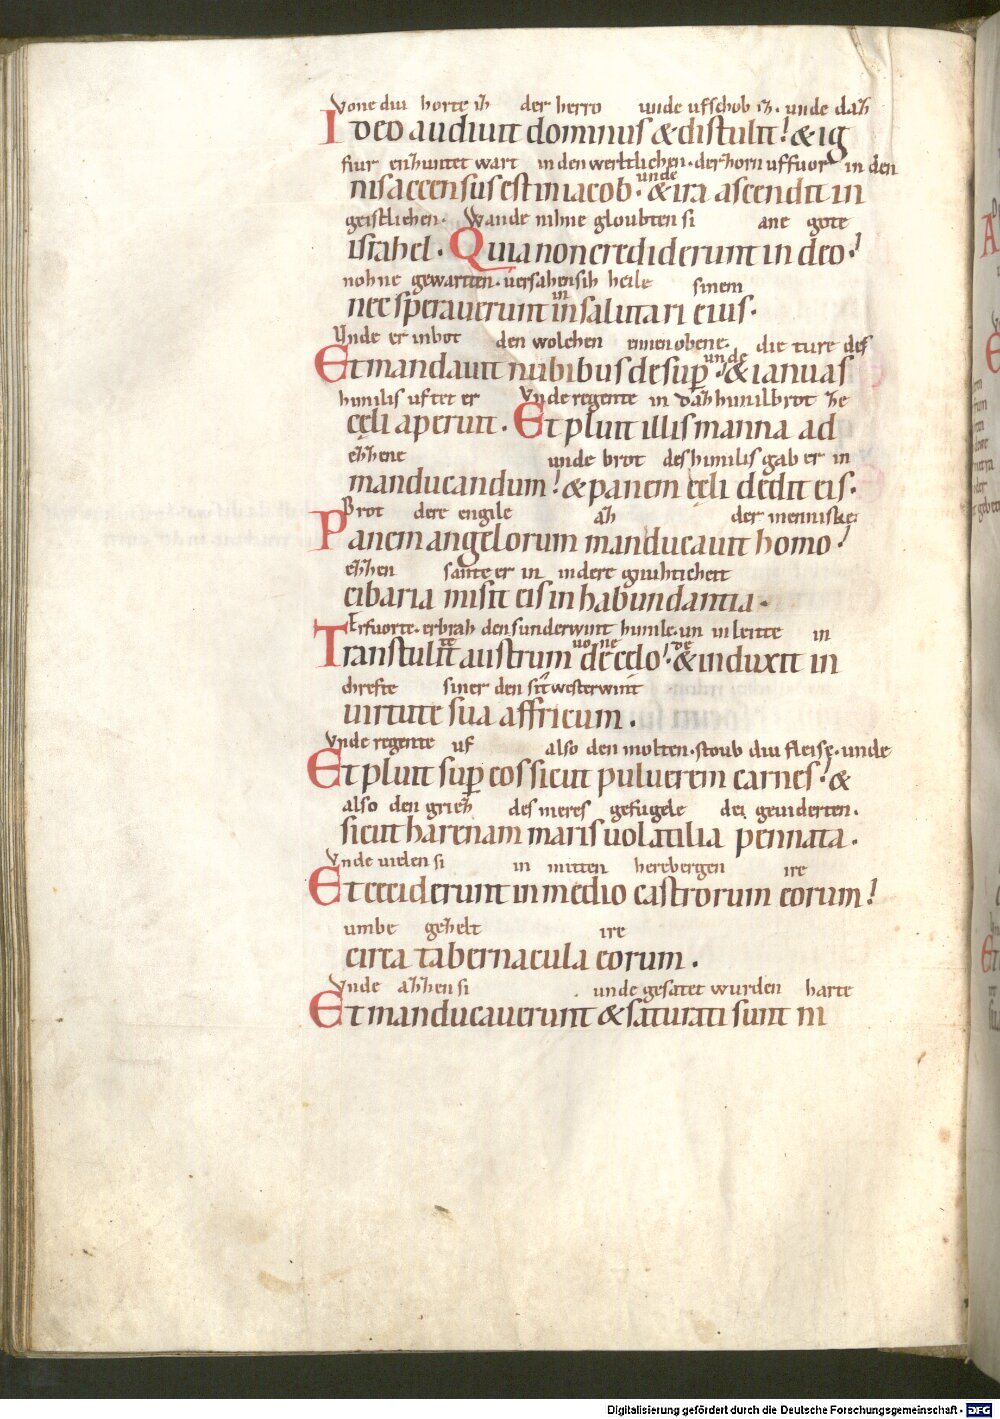 Vone diu horte ih der herro unde ufschob iz. unde daz
Ideo audiuit dominus & distulit! & ig
fiur enzuntet wart in den werltlichen. der zorn uffuor in den
nis accensus est in iacob. unde & ira ascendit in
geistlichen. Wande nihne gloubten si ane gote
israhel. Quia non crediderunt in deo!
nohne gewartten. uersahen sih heile sinem
nec sperauerunt in salutari eius.
Vnde er inbot den wolchen innen obene. die ture des
Et mandauit nubibus desup unde & ianuas
himilis uftet er Vnde regente in daz himilbrot ze
cęli aperuit. Et pluit illis manna ad
ezzene unde brot des himilis gab er in
manducandum! & panem cęli dedit eis.
Brot dere engile az der menniske
Panem angelorum manducauit homo!
ezzen sante er in in dere gnuhticheit
cibaria misit eis in habundantia.
Erfuorte. erbrah den sunderwint himile. un in leitte in
Transtulit te austrum uone de cęlo! de & induxit in
chrefte siner den sit westerwint
uirtute sua affricum.
Vnde regente uf also den molten. stoub diu fleisc. unde
Et pluit sup eos sicut puluerem carnes! &
also den griez des meres gefugele dei geuiderten.
sicut harenam maris uolatilia pennata.
Vnde uielen si in mitten herebergen ire
Et ceciderunt in medio castrorum eorum!
umbe gezelt ire
circa tabernacula eorum.
Vnde azzen si unde gesatet wurden harte
Et manducauerunt & saturati sunt ni
Digitalisierung gefördert durch die Deutsche Forschungsgemeinschaft - DFG